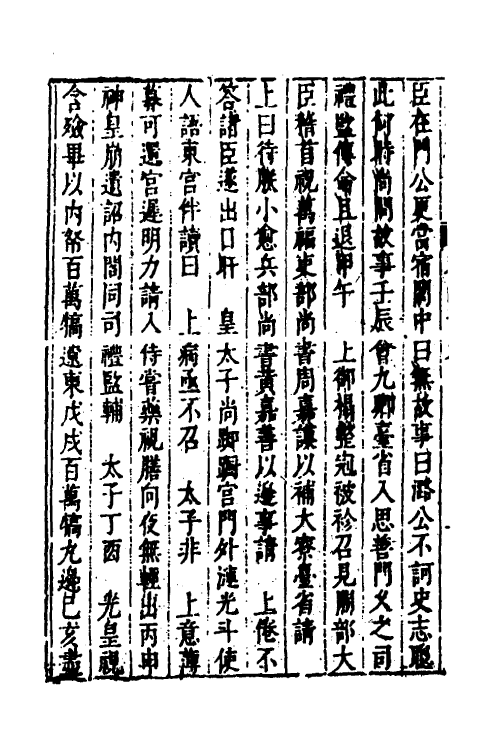 臣在門公更當宿閣中曰無故事曰潞公不訶史志聰
此何時尚問故事壬辰會九卿臺省入思善門乂之司
禮監傳侖且退甲午　上御榻整冠被袗召見閣部大
臣稽首祝萬福吏部尚書周嘉謨以補大寮臺省請
上曰待朕小愈兵部尚書黃嘉善以邊事請　上倦不
答諸臣遂出日旰　皇太子尚踟躕宮門外漣光斗使
人語東宮伴讀曰　上病亟不召　太子非　上意薄
暮可還宮遲明力請入侍嘗藥視膳向夜無輕出丙申
神皇崩遺詔內閣同司禮監輔　太子丁酉　光皇視
含殮畢以內帑百萬犒遼東戊戌百萬犒九邊己亥盡